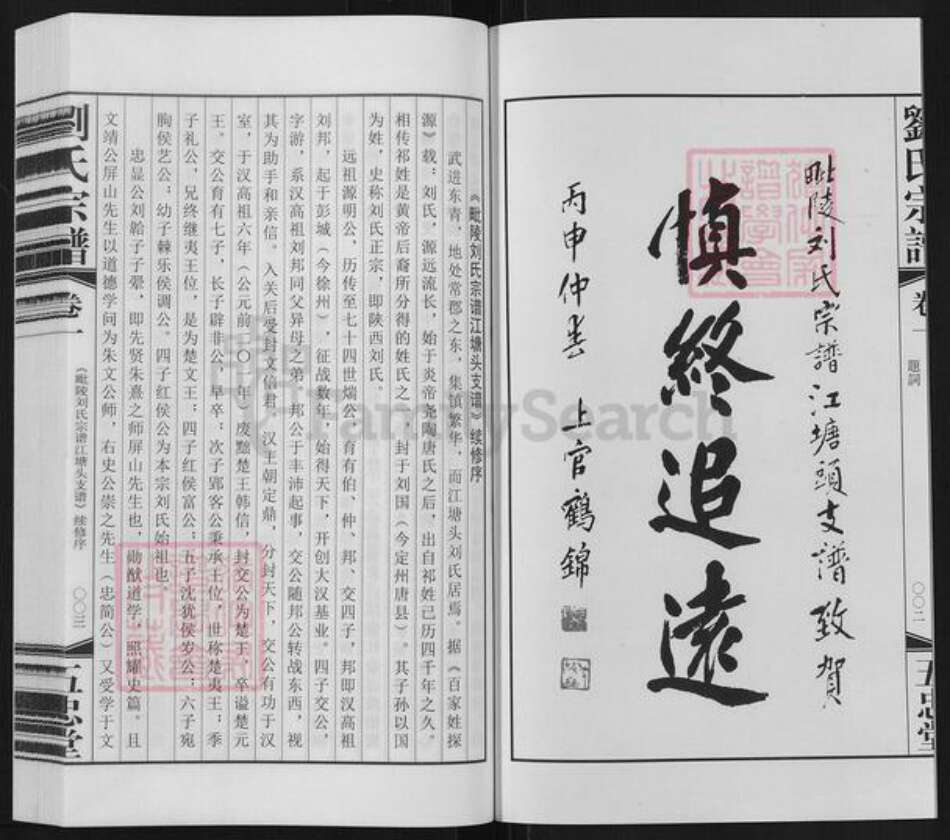 劉氏宗譜
卷一
題詞
〇〇二
五忠堂
毗陵刘氏宗譜江塘頭支譜致賀
慎終追遠
丙申仲春 上官鶴錦
《毗陵刘氏宗谱江塘头支谱》续修序
武进东青，地处常郡之东，集镇繁华，而江塘头刘氏居焉。据《百家姓探
源》载：刘氏，源远流长，始于炎帝尧陶唐氏之后，出自祁姓已历四千年之久。
相传祁姓是黄帝后裔所分得的姓氏之一，封于刘国（今定州唐县）。其子孙以国
为姓，史称刘氏正宗，即陕西刘氏。
远祖源明公，历传至七十四世煓公，育有伯、仲、邦、交四子，邦即汉高祖
刘邦，起于彭城（今徐州），征战数年，始得天下，开创大汉基业。四子交公，
字游，系汉高祖刘邦同父异母之弟。邦公于丰沛起事，交公随邦公转战东西，视
其为助手和亲信。入关后受封文信君。汉王朝定鼎，分封天下，交公有功于汉
室，于汉高祖六年（公元前二〇一年）废黜楚王韩信，封交公为楚王，卒谥楚元
王。交公育有七子，长子辟非公，早卒；次子郢客公秉承王位，世称楚夷王；季
子礼公，兄终继夷王位，是为楚文王；四子红侯富公；五子沈犹侯岁公；六子宛
朐侯艺公；幼子棘乐侯调公。四子红侯公为本宗刘氏始祖也。
忠显公刘韐子子翚，即先贤朱熹之师屏山先生也，勋猷道学，照耀史篇。且
文靖公屏山先生以道德学问为朱文公师，右史公崇之先生（忠简公）又受学于文
劉氏宗譜
卷一
《毗陵刘氏宗谱江塘头支谱》续修序
〇〇三
五忠堂
FamilySearch